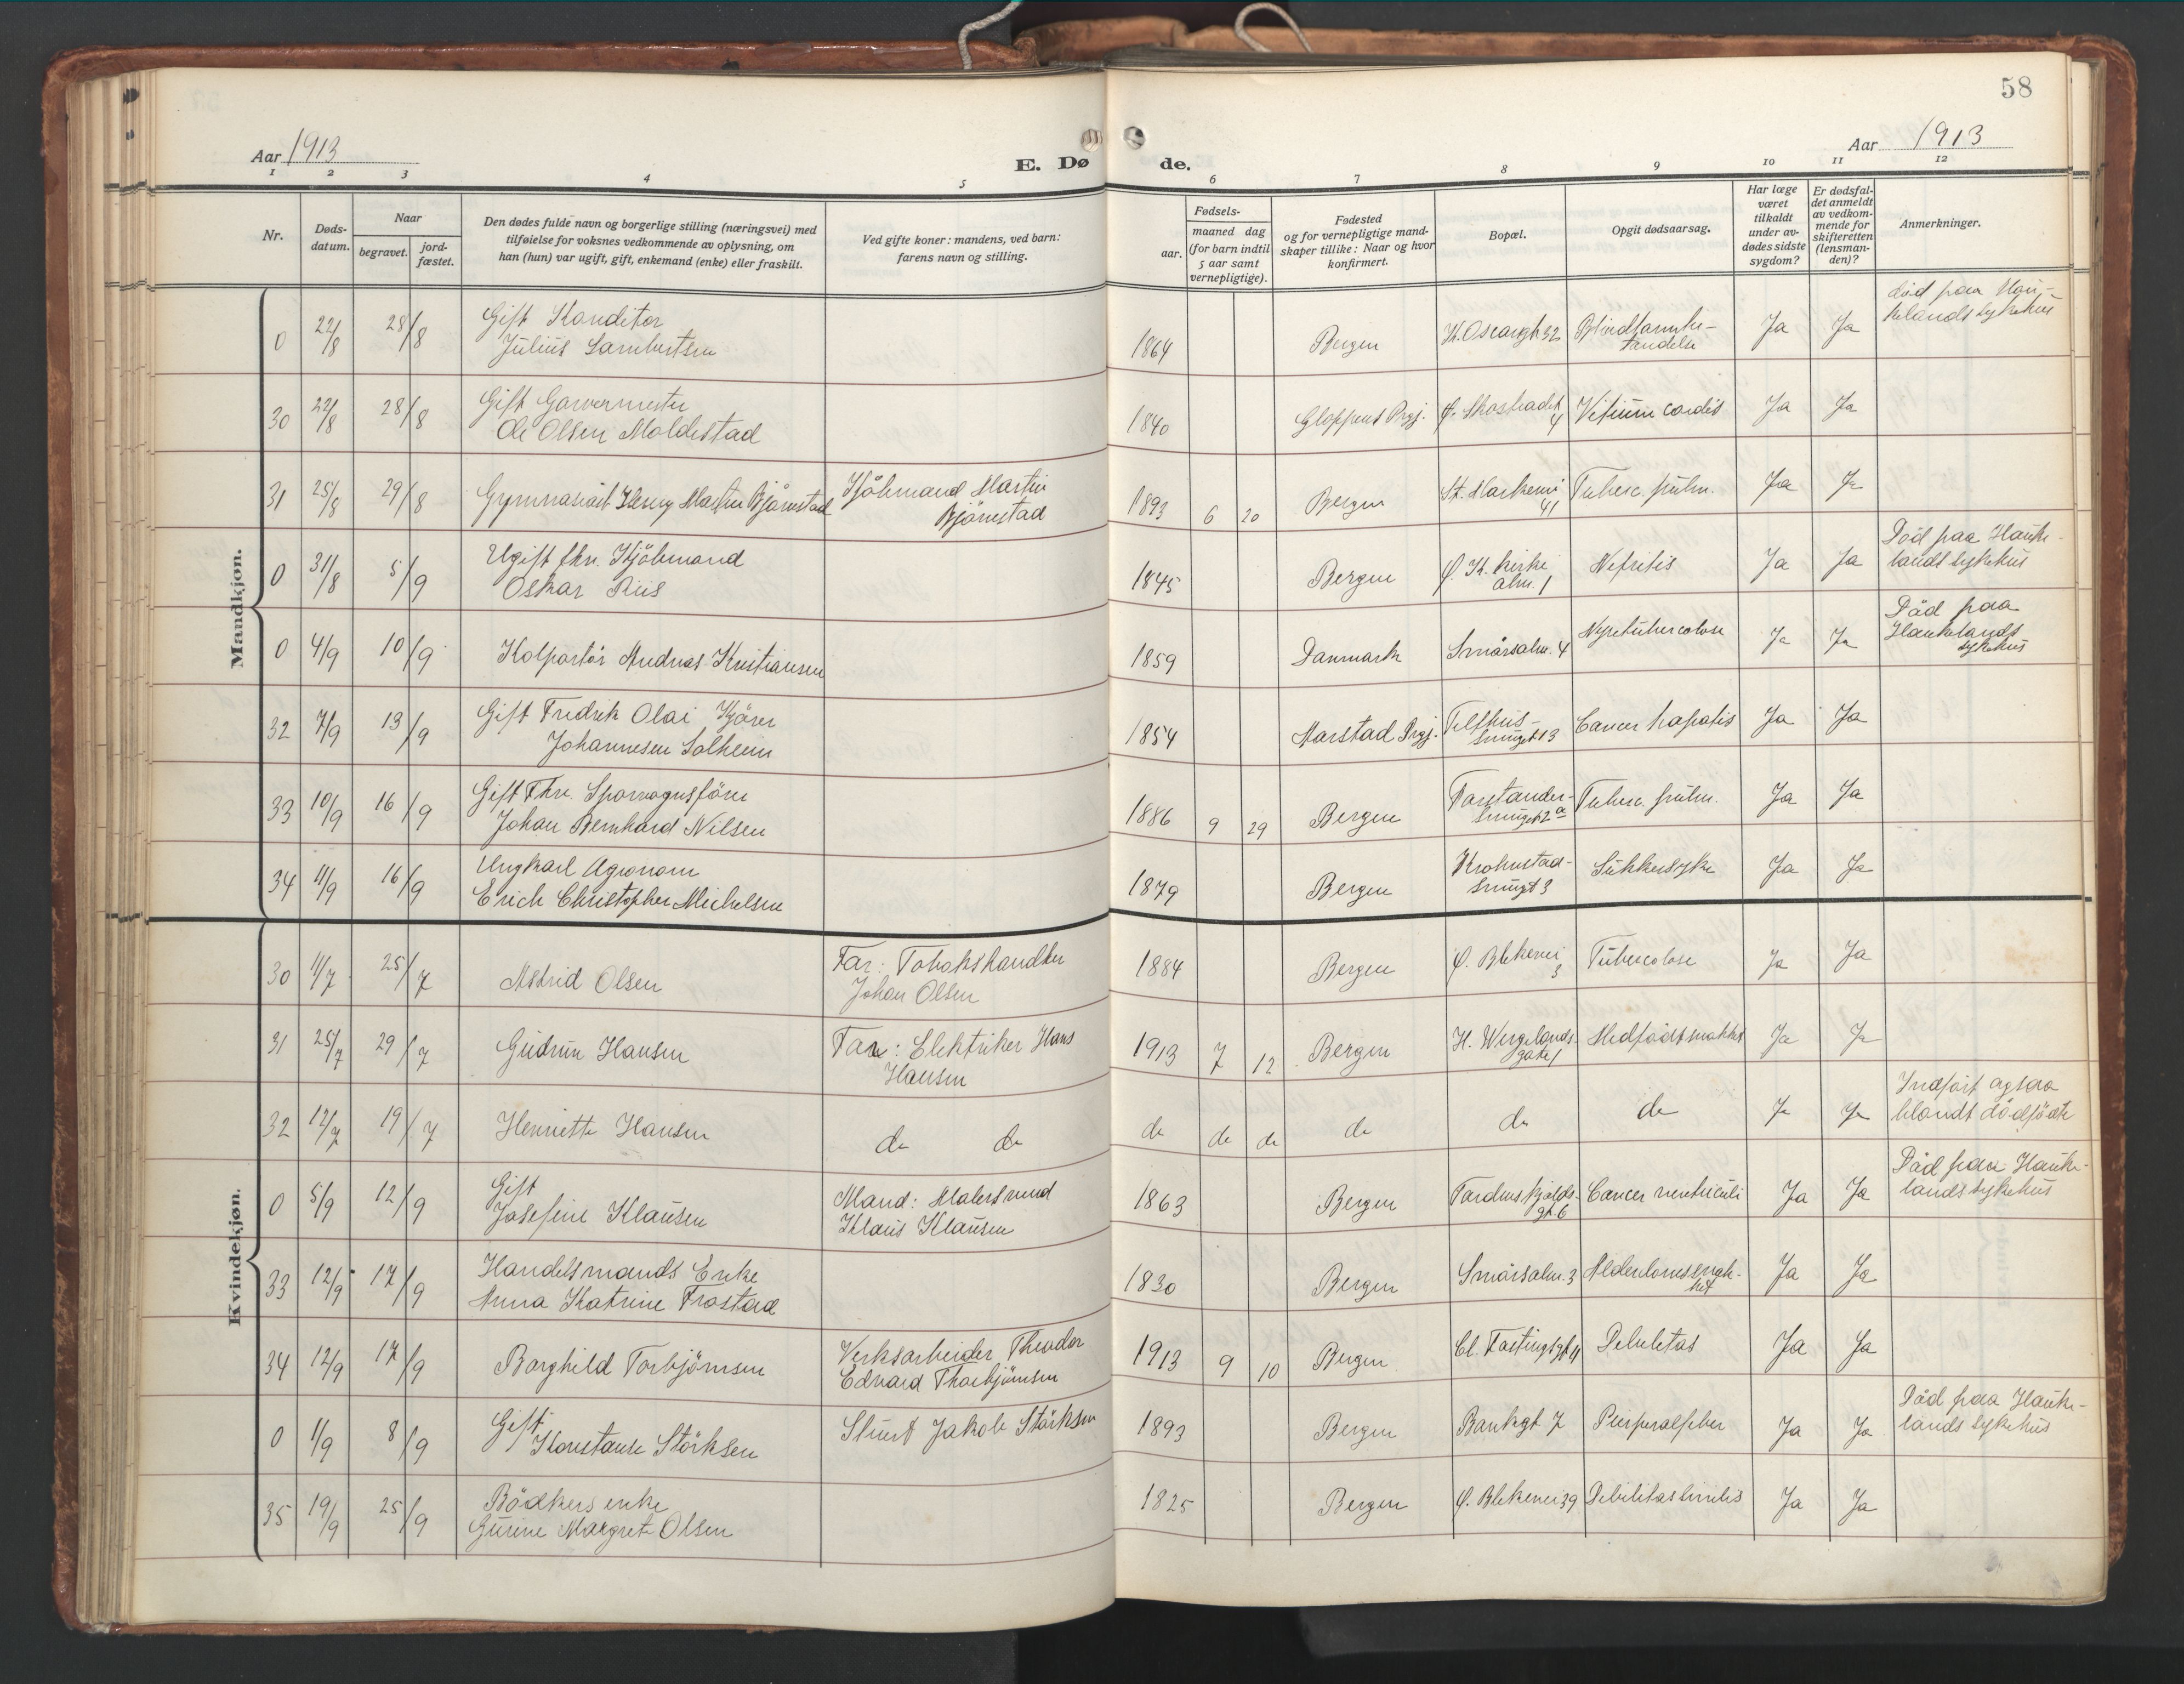 58
Aar 1913
E. Dø
de.
Aar 1913
1 2 3 4 5 6 7 8 9 10 11 12
Nr.
Døds-
datum.
Naar
begravet.
jord-
fæstet.
Den dødes fulde navn og borgerlige stilling (næringsvei) med
tilføielse for voksnes vedkommende av oplysning, om
han (hun) var ugift, gift, enkemand (enke) eller fraskilt.
Ved gifte koner: mandens, ved barn:
farens navn og stilling.
Fødsels-
aar.
maaned dag
(for barn indtil
5 aar samt
vernepligtige).
Fødested
og for vernepligtige mand-
skaper tillike: Naar og hvor
konfirmert.
Bopæl.
Opgit dødsaarsag.
Har læge
været
tilkaldt
under av-
dødes sidste
sygdom?
Er dødsfal-
det anmeldt
av vedkom-
mende for
skifteretten
(lensman-
den)?
Anmerkninger.
Mandkjøn.
0 22/8 28/8 Gift Konditor
Julius Lambertsen
1864 Bergen K. Oscarsgt 32 Blindtarmbe-
tændelse
Ja Ja
død paa Hau-
kelands sykehus
30 22/8 28/8 Gift Garvermester
Ole Olsen Moldestad
1840 Gloppens Prgj. Ø. Skostrædet
4
Vitium cordis Ja Ja
31 25/8 29/8 Gymnasiast Henry Martin Bjørnestad
Kjøbmand Martin
Bjørnestad
1893 6 20 Bergen St. Markevei
41
Tuberc. pulm. Ja Ja
0 31/8 5/9 Ugift fhv. Kjøbmand
Oskar Riis
1845 Bergen Ø. K. kirke
alm. 1
Nefritis Ja Ja
Død paa Hauke-
lands sykehus
0 4/9 10/9 Kolportør Andreas Kristiansen
1859 Danmark Smørsalm. 4 Nyretuberculose Ja Ja
Død paa
Haukelands
sykehus
32 7/9 13/9 Gift Fredrik Olai
Johannesen Solheim
1854 Prgj. Telthus-
smuget 13
Cancer hepatis Ja Ja
33 10/9 16/9 Gift Fhv. Sporvognsfører
Johan Bernhard Nilsen
1886 9 29 Bergen Forstander-
smuget 2a
Tuberc. pulm. Ja Ja
34 11/9 16/9 Ungkarl Agronom
Erich Christopher Michelsen
1879 Bergen Krohnstad-
smugt 3
Sukkersyke Ja Ja
Kvindekjøn.
30 11/7 25/7 Astrid Olsen
Far: Tobakshandler
Johan Olsen
1884 Bergen Ø. Blekevei
3
Tuberculose Ja Ja
31 25/7 29/7 Gudrun Hansen
Far: Elektriker Hans
Hansen
1913 7 12 Bergen H. Wergelands-
gate 1
Medfødt svakhet Ja Ja
32 12/7 19/7 Henriette Hansen
do do
do do do do do do Ja Ja
Indført ogsaa
blandt dødfødte
0 5/9 12/9 Gift
Josefine Klausen
Mand: Malersvend
Klaus Klausen
1863 Bergen Tordenskjolds-
gt. 6
Cancer ventriculi Ja Ja
Død paa Hauke-
lands sykehus
33 12/9 17/9 Handelsmands Enke
Anna Katrine Frostad
1830 Bergen Smørsalm. 3 Alderdomssvagh-
het
Ja Ja
34 12/9 17/9 Borghild Torbjørnsen
Verksarbeider Theodor
Edvard Thorbjørnsen
1913 9 10 Bergen Cl. Fastingsgt 11 Debilitas Ja Ja
0 1/9 8/9 Gift
Konstanse Størksen
Jakob Størksen
1893 Bergen Bankgt 7 Puerperalfeber Ja Ja
Død paa Hauke-
lands sykehus
35 19/9 25/9 Bødkers enke
Gurine Margrete Olsen
1825 Bergen Ø. Blekevei 39 Debilitas senilis Ja Ja